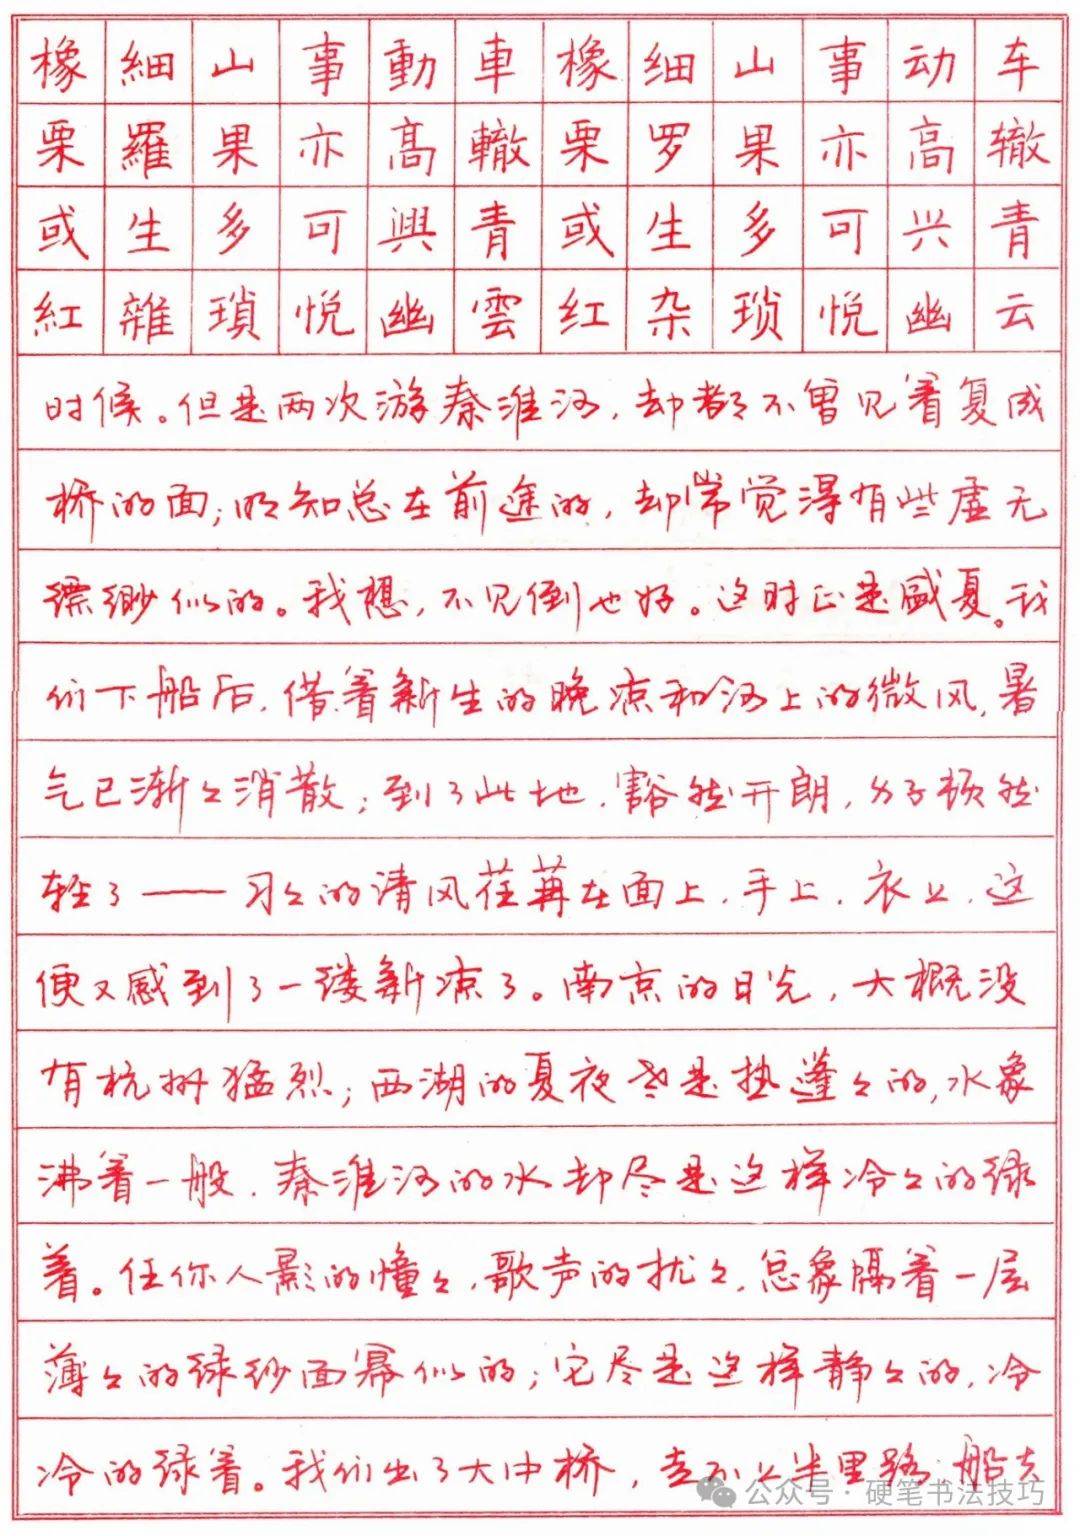 车辙青云
动高兴幽
事亦可悦
山果多琐
细罗生杂
橡栗或红
車轍青雲
動高興幽
事亦可悦
山果多瑣
細羅生雜
橡栗或紅
时候。但是两次游秦淮河,却都不曾见着复成
桥的面;明知总在前途的,却常觉得有些虚无
缥缈似的。我想,不见倒也好。这时正是盛夏。我
们下船后,借着新生的晚凉和河上的微风,暑
气已渐々消散;到了此地,豁然开朗,身子顿然
轻了——习々的清风荏苒在面上,手上,衣上,这
便又感到了一缕新凉了。南京的日光,大概没
有杭州猛烈;西湖的夏夜老是热蓬々的,水象
沸着一般,秦淮河的水却尽是这样冷々的绿
着。任你人影的憧々,歌声的扰々,总象隔着一层
薄々的绿纱面幂似的;它尽是这样静々的,冷
冷的绿着。我们出了大中桥,走不上半里路,船夫
公众号·硬笔书法技巧